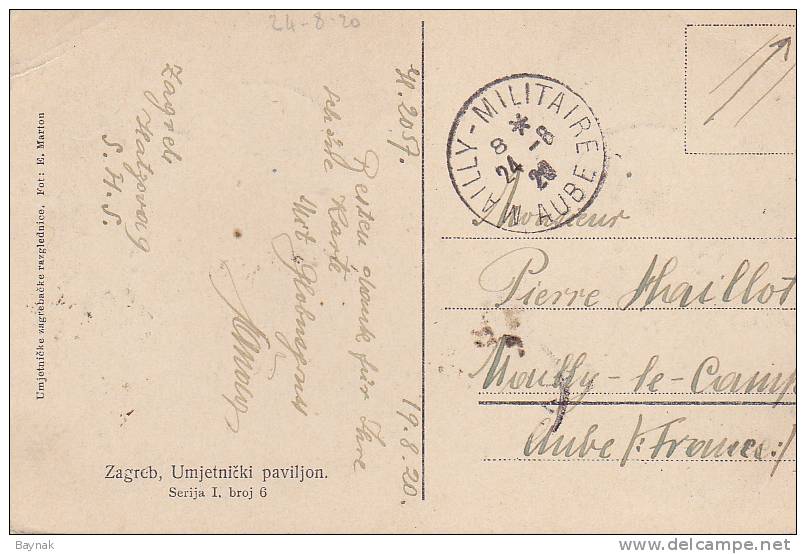 24-8-20
N. 2057.
19.8.20.
Besten dank für Ihre
schöne Karte
Mit
Zagreb
S.H.S.
Umjetničke zagrebačke razglednice. Fot: E. Marton
Zagreb, Umjetnički paviljon.
Serija I, broj 6
MAILLY-MILITAIRE
8 * -8
24 20
AUBE
Monsieur
Pierre Thaillot
Mailly-le-Camp
Aube /:France:/
Baynak
delcampe.net